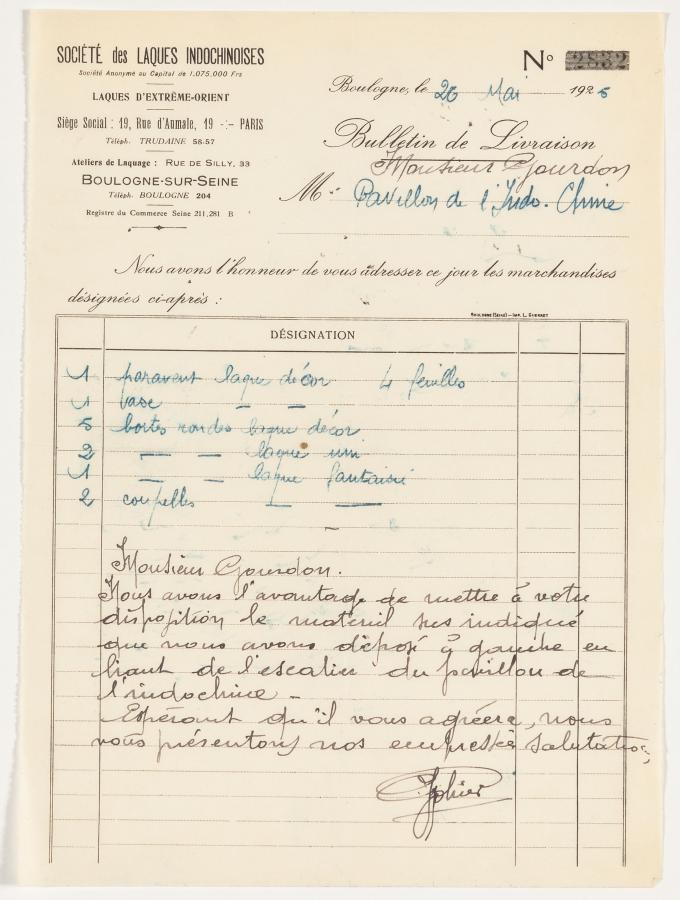 SOCIÉTÉ des LAQUES INDOCHINOISES
Société Anonyme au Capital de 1.075.000 Frs
LAQUES D'EXTRÊME-ORIENT
Siège Social : 19, Rue d'Aumale, 19 -:- PARIS
Téléph. TRUDAINE 58-57
Ateliers de Laquage : RUE DE SILLY, 33
BOULOGNE-SUR-SEINE
Téléph. BOULOGNE 204
Registre du Commerce Seine 211,281 B
N° 2882
Boulogne, le 26 Mai 1925
Bulletin de Livraison
Monsieur Gourdon
M Pavillon de l'Indo-Chine
Nous avons l'honneur de vous adresser ce jour les marchandises
désignées ci-après :
BOULOGNE (SEINE) — IMP. L. GUERNET
DÉSIGNATION
1 paravent laque décor 4 feuilles
1 vase — —
5 boites rondes laque décor
2 — — laque uni
1 — — laque fantaisie
2 coupelles — —
Monsieur Gourdon.
Nous avons l'avantage de mettre à votre
disposition le matériel sus indiqué
que nous avons déposé à gauche en
haut de l'escalier du pavillon de
l'indochine -
Espérant qu'il vous agréera, nous
vous présentons nos empressées salutations